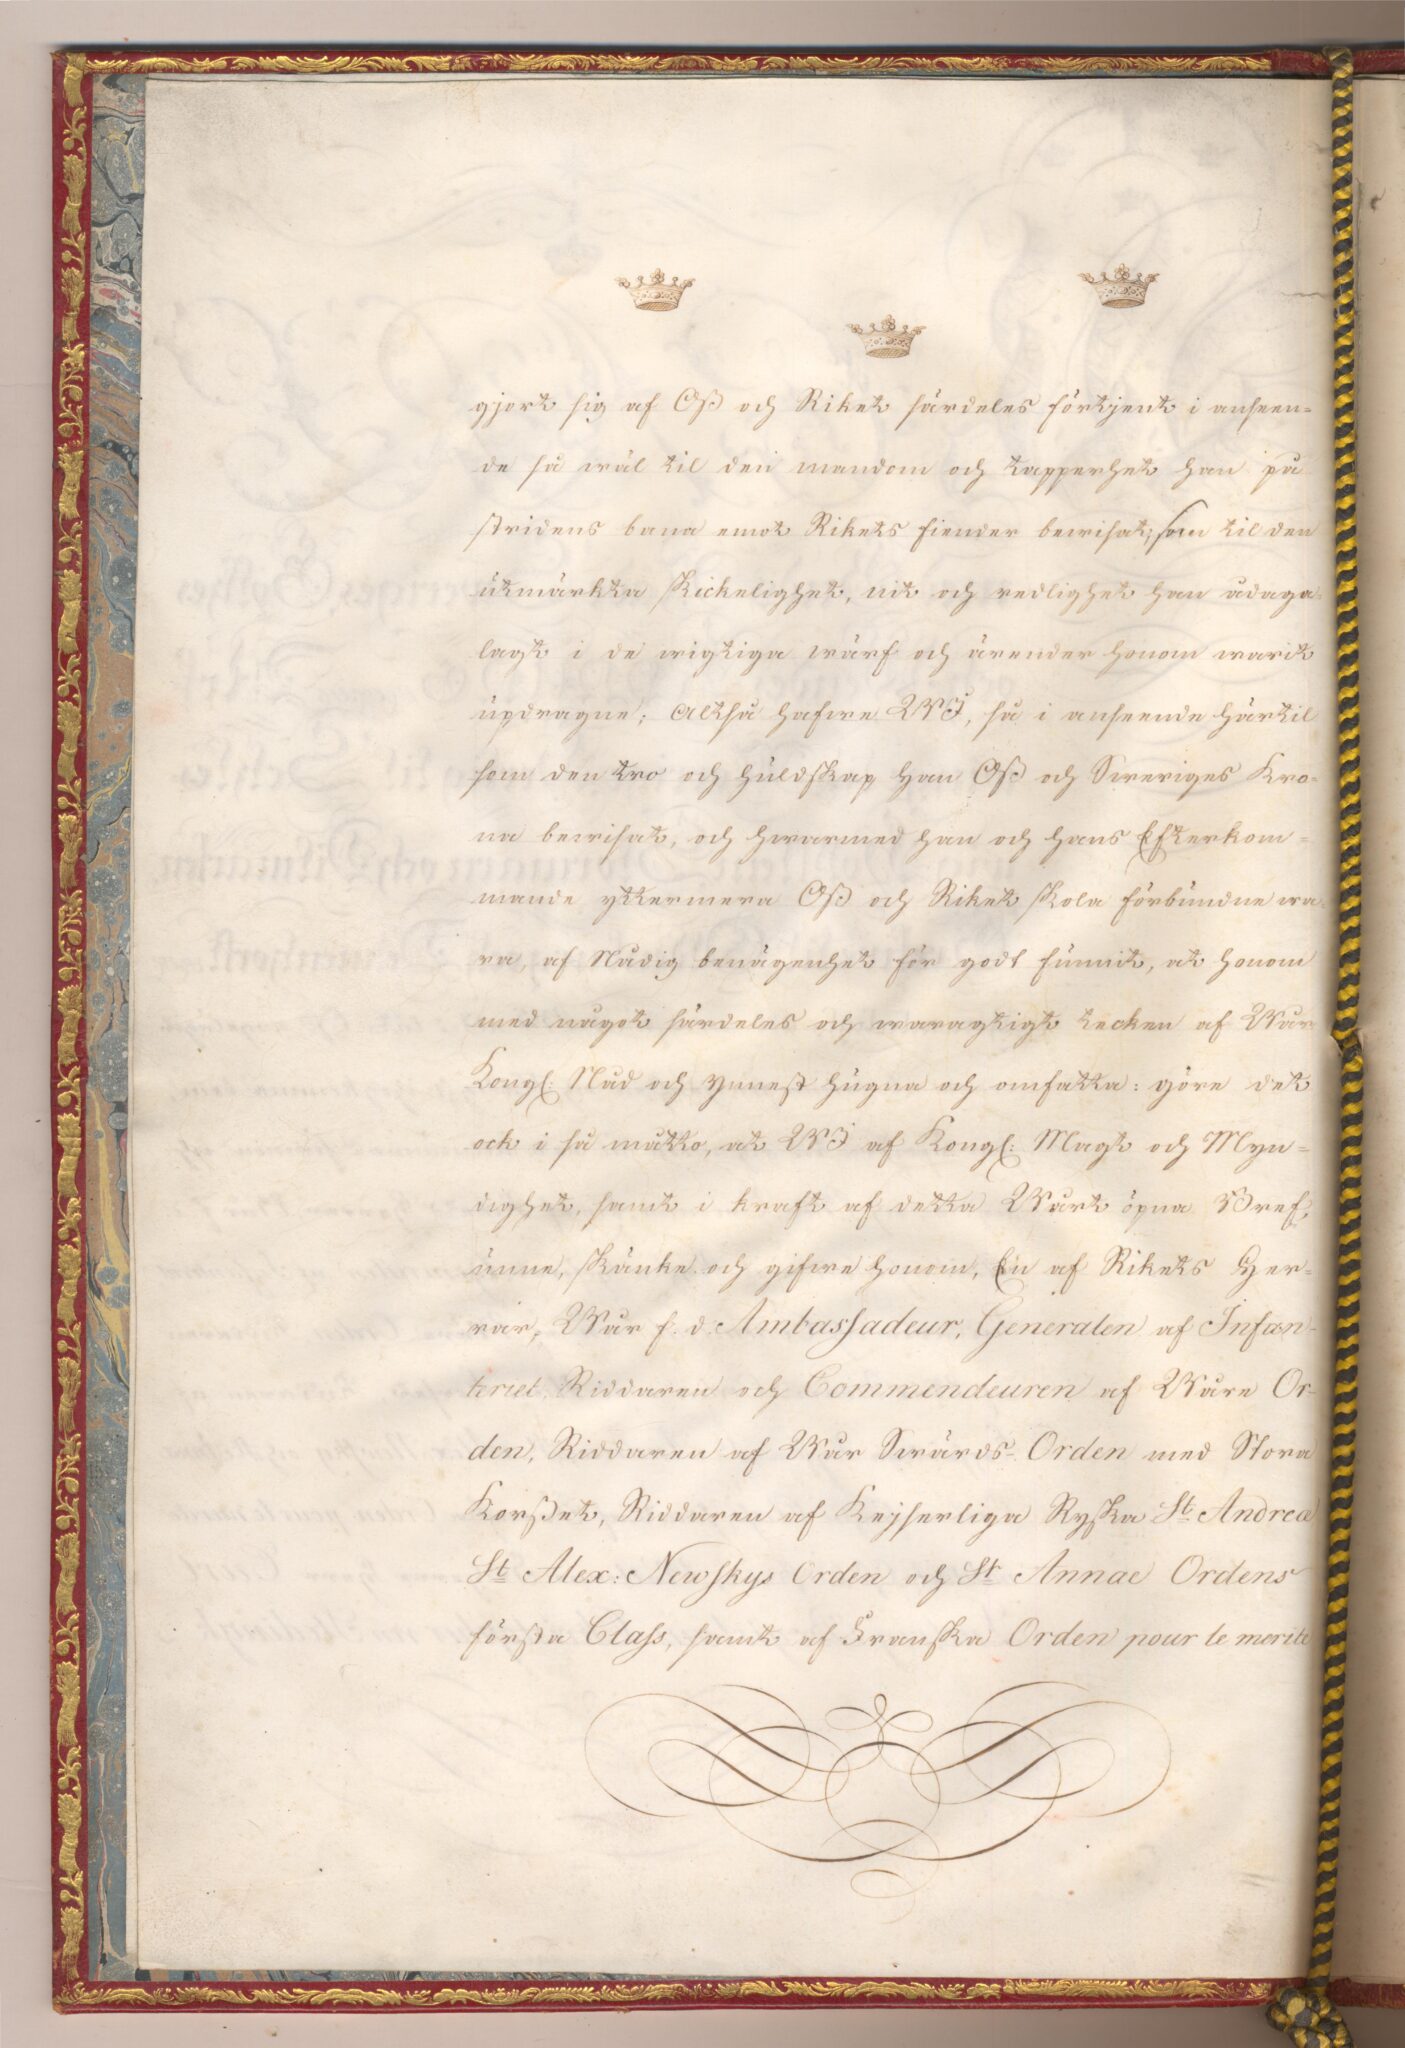 gjort sig af Oß och Riket särdeles förtjent i anseen-
de så wäl til den mandom och tapperhet han på
stridens bana emot Rikets fiender bewisat; som til den
utmärkta skickelighet, nit och redlighet han ådaga-
lagt i de wigtiga wärf och ärender honom warit
updragne; Altså hafwe WJ, så i anseende härtil
som den tro och huldskap Han Oß och Sweriges Kro-
na bewisat, och hwarmed han och hans Efterkom-
mande yttermera Oß och Riket skola förbundne wa-
ra, af Nådig benägenhet för godt funnit, at honom
med något särdeles och waragtigt tecken af Wår
Kongl: Nåd och ynnest hugna och omfatta: göre det
ock i så matto, at WJ af Kongl: Magt och Myn-
dighet, samt i kraft af detta Wårt öpna Bref,
unne, skänke och gifwe honom, En af Rikets Her-
rar, Wår f. d. Ambassadeur, Generalen af Infan-
teriet, Riddaren och Commendeuren af Wåre Or-
den, Riddaren af Wår Swärds-Orden med Stora
Korßet, Riddaren af Kejserliga Ryska St. Andreæ
St. Alex: Newskys Orden och St. Annae Ordens
första Class, samt af Franska Orden pour le merite